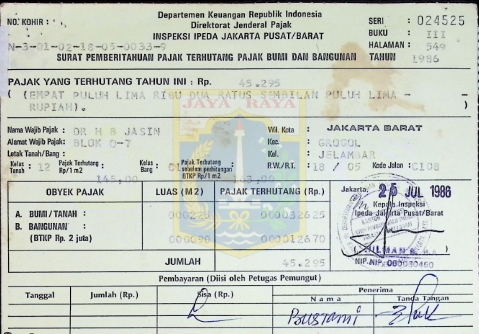 Departemen Keuangan Republik Indonesia
Direktorat Jenderal Pajak
INSPEKSI IPEDA JAKARTA PUSAT/BARAT
SURAT PEMBERITAHUAN PAJAK TERHUTANG PAJAK BUMI DAN BANGUNAN
NO. KOHIR :
N-3-01-02-18-05-0033-9
SERI : 024525
BUKU : III
HALAMAN : 549
TAHUN 1986
PAJAK YANG TERHUTANG TAHUN INI : Rp. 45.295
( (EMPAT PULUH LIMA RIBU DUA RATUS SEMBILAN PULUH LIMA -
RUPIAH).
JAYA RAYA
Nama Wajib Pajak : DR H B JASIN
Alamat Wajib Pajak: BLOK O-7
Letak Tanah/Bang :
Wil. Kota : JAKARTA BARAT
Kec. GROGOL
Kel. JELAMBAR
R.W./RT. 18 / 05 Kode Jalan : C108
Kelas Tanah : 12 Pajak Terhutang Rp./1 m2 145,00
Kelas Bang Pajak Terhutang sebelum perhitungan BTKP Rp/1 m2
OBYEK PAJAK LUAS (M2) PAJAK TERHUTANG (Rp.)
A. BUMI/TANAH : 000225 000032625
B. BANGUNAN :
(BTKP Rp. 2 juta) 000090 000012670
JUMLAH 45.295
Jakarta, 25 JUL 1986
Kepala Inspeksi
Ipeda Jakarta Pusat/Barat
NIP. 060030460
Pembayaran (Diisi oleh Petugas Pemungut)
Tanggal Jumlah (Rp.) Sisa (Rp.) Penerima
Nama Tanda Tangan